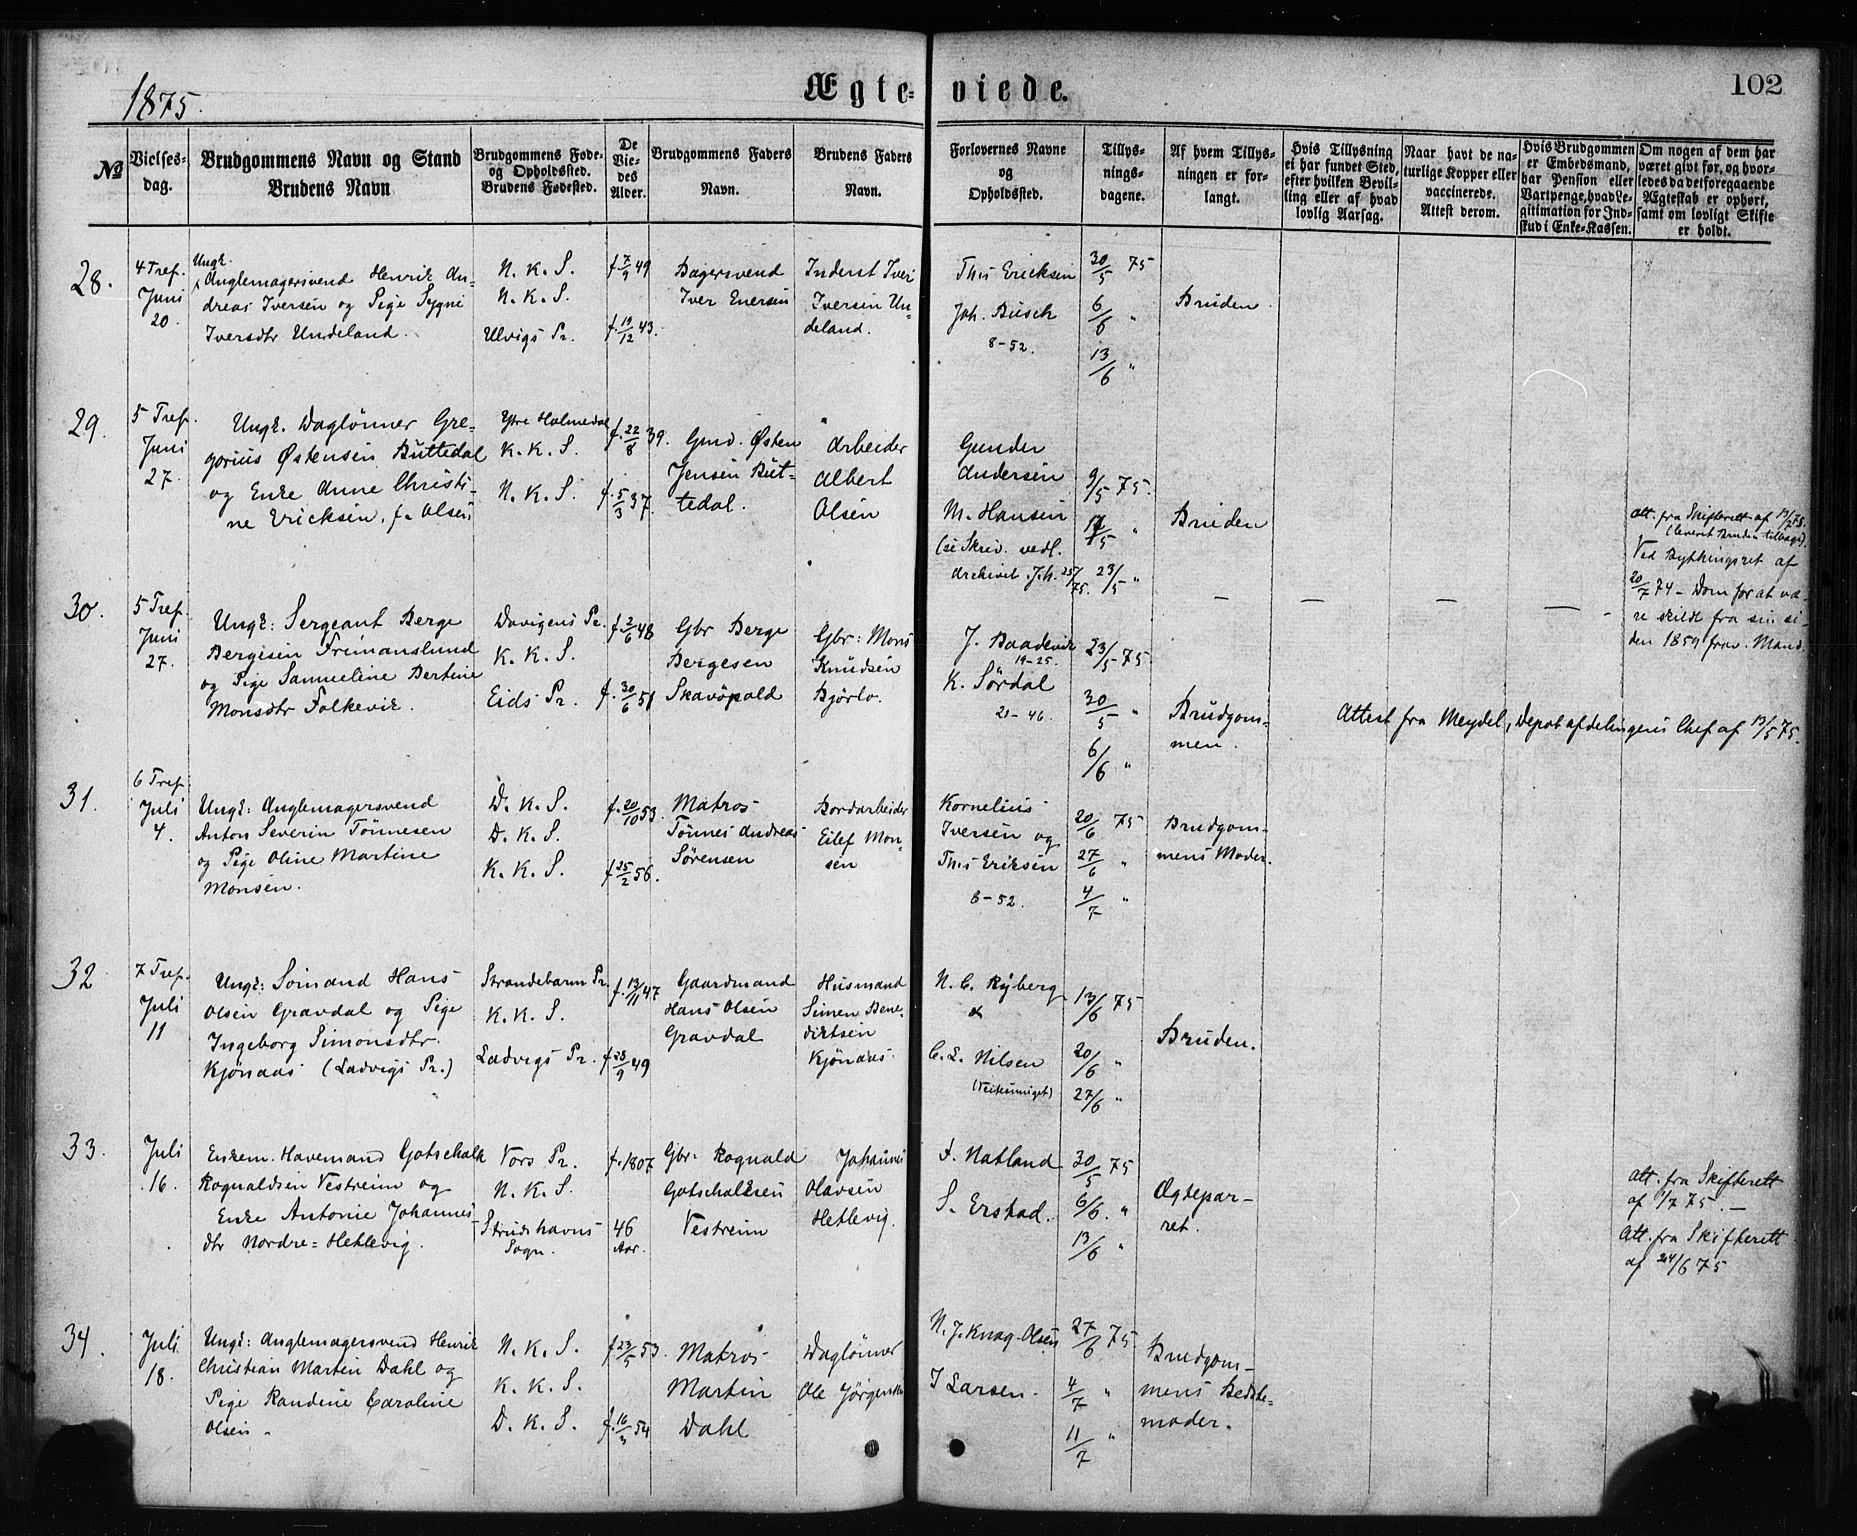 1875.
Ægte-viede.
102
No
Vielses-
dag.
Brudgommens Navn og Stand
Brudens Navn
Brudgommens Føde-
og Opholdssted.
Brudens Fødested.
De
Vie-
des
Alder.
Brudgommens Faders
Navn.
Brudens Faders
Navn.
Forlovernes Navne
og
Opholdssted.
Tillys-
nings-
dagene.
Af hvem Tillys-
ningen er for-
langt.
Hvis Tillysning
ei har fundet Sted,
efter hvilken Bevil-
ling eller af hvad
lovlig Aarsag.
Naar havt de na-
turlige Kopper eller
vaccinerede.
Attest derom.
Hvis Brudgommen
er Embedsmand,
har Pension eller
Vartpenge, hvad Le-
gitimation for Ind-
skud i Enke-Kassen.
Om nogen af dem har
været givt før, og hvor-
ledes da det foregaaende
Ægteskab er ophørt,
samt om lovligt Skifte
er holdt.
28.
4 Tref.
Juni
20.
Ungk.
Anglemagersvend Henrik An-
dreas Iversen og Pige Sygni
Iversdtr Undeland.
N. K. S.
N. K. S.
Ulvigs Pr.
f. 7/9 49
f. 19/12 43.
Bagersvend
Iver Enersen
Inderst Iver
Iversen Un-
deland.
Ths Ericksen
Joh. Busch
8-52.
30/5 75
6/6 "
13/6 "
Bruden
29.
5 Tref.
Juni
27.
Ungk. Daglønner Gre-
gorius Østensen Buttedal
og Enke Anne Christi-
ne Ericksen, f. Olsen
Ytre Holmedal
K. K. S.
N. K. S.
f. 22/8 39.
f. 5/3 37.
Gmd. Østen
Jensen But-
tedal.
Arbeider
Albert
Olsen
Gunder
Andersen
M. Hansen
(se Skriv. vedl.
Archivet. J.h. 25/75.
9/5 75.
17/5 "
23/5 "
Bruden
Att. fra Skifterett af 13/7 75.
(leveret Bruden tilbage).
Ved Bythingsret af
20/7 74 - Dom for at væ-
re skildt fra sin si-
den 1859 frav. Mand.
30.
5 Tref.
Juni
27.
Ungk: Sergeant Berge
Bergesen Frimanslund
og Pige Samueline Bertine
Monsdtr Folkevik.
Davigens Pr.
K. K. S.
Eids Pr.
f. 2/6 48
f. 30/6 51
Gbr Berge
Bergesen
Skavöpold
Gbr: Mons
Knudsen
Bjørlo.
J. Baadsvik
19-25.
K. Sørdal
21-46.
23/5 75
30/5 "
6/6 "
Brudgom-
men.
Attest fra Meydel, Depotafdelingens Chef af 13/5 75.
31.
6 Tref.
Juli
4.
Ungk: Anglemagersvend
Anton Severin Tönnesen
og Pige Oline Martine
Monsen.
D. K. S.
D. K. S.
K. K. S.
f. 20/10 53.
f. 25/2 56.
Matros
Tönnes Andreas
Sörensen
Bordarbeider
Eilef Mon-
sen
Kornelius
Iversen og
Ths Eriksen
8-52.
20/6 75
27/6 "
4/7 "
Brudgom-
mens Moder.
32
7 Tref.
Juli
11
Ungk: Sömand Hans
Olsen Gravdal og Pige
Ingeborg Simonsdtr.
Kjönaas (Ladvigs Pr.)
Strandebarm Pr.
K. K. S.
Ladvigs Pr.
f. 13/11 47
f. 28/9 49
Gaardmand
Hans Olsen
Gravdal
Husmand
Simen Bene-
dictsen
Kjönaas.
N. C. Ryberg
&
C. L. Nilsen
13/6 75
20/6 "
27/6 "
Bruden.
33.
Juli
16.
Enkem. Havemand Gotschalk
Rognaldsen Vestreim og
Enke Antonie Johannes-
dtr Nordre-Hetlevig.
Vors Pr.
N. K. S.
Strudshavns
Sogn.
f. 1807
46
Aar.
Gbr: Rognald
Gotschalksen
Vestreim
Johannes
Olavsen
Hetlevig.
F. Natland
S. Erstad.
30/5 75
6/6. "
13/6 "
Ægtepar-
ret.
Att. fra Skifterett
af 1/7 75.
Att. fra Skifterett
af 24/6 75
34.
Juli
18.
Ungk: Anglemagersvend Henrik
Christian Martin Dahl og
Pige Randine Caroline
Olsen.
N. K. S.
K. K. S.
D. K. S.
f. 23/5 53.
f. 16/3 54
Matros
Martin
Dahl
Daglönner
Ole Jörgensen
N. J. Knag-Olsen
J Larsen.
27/6 75
4/7 "
11/7 "
Brudgom-
mens Bedste-
moder.